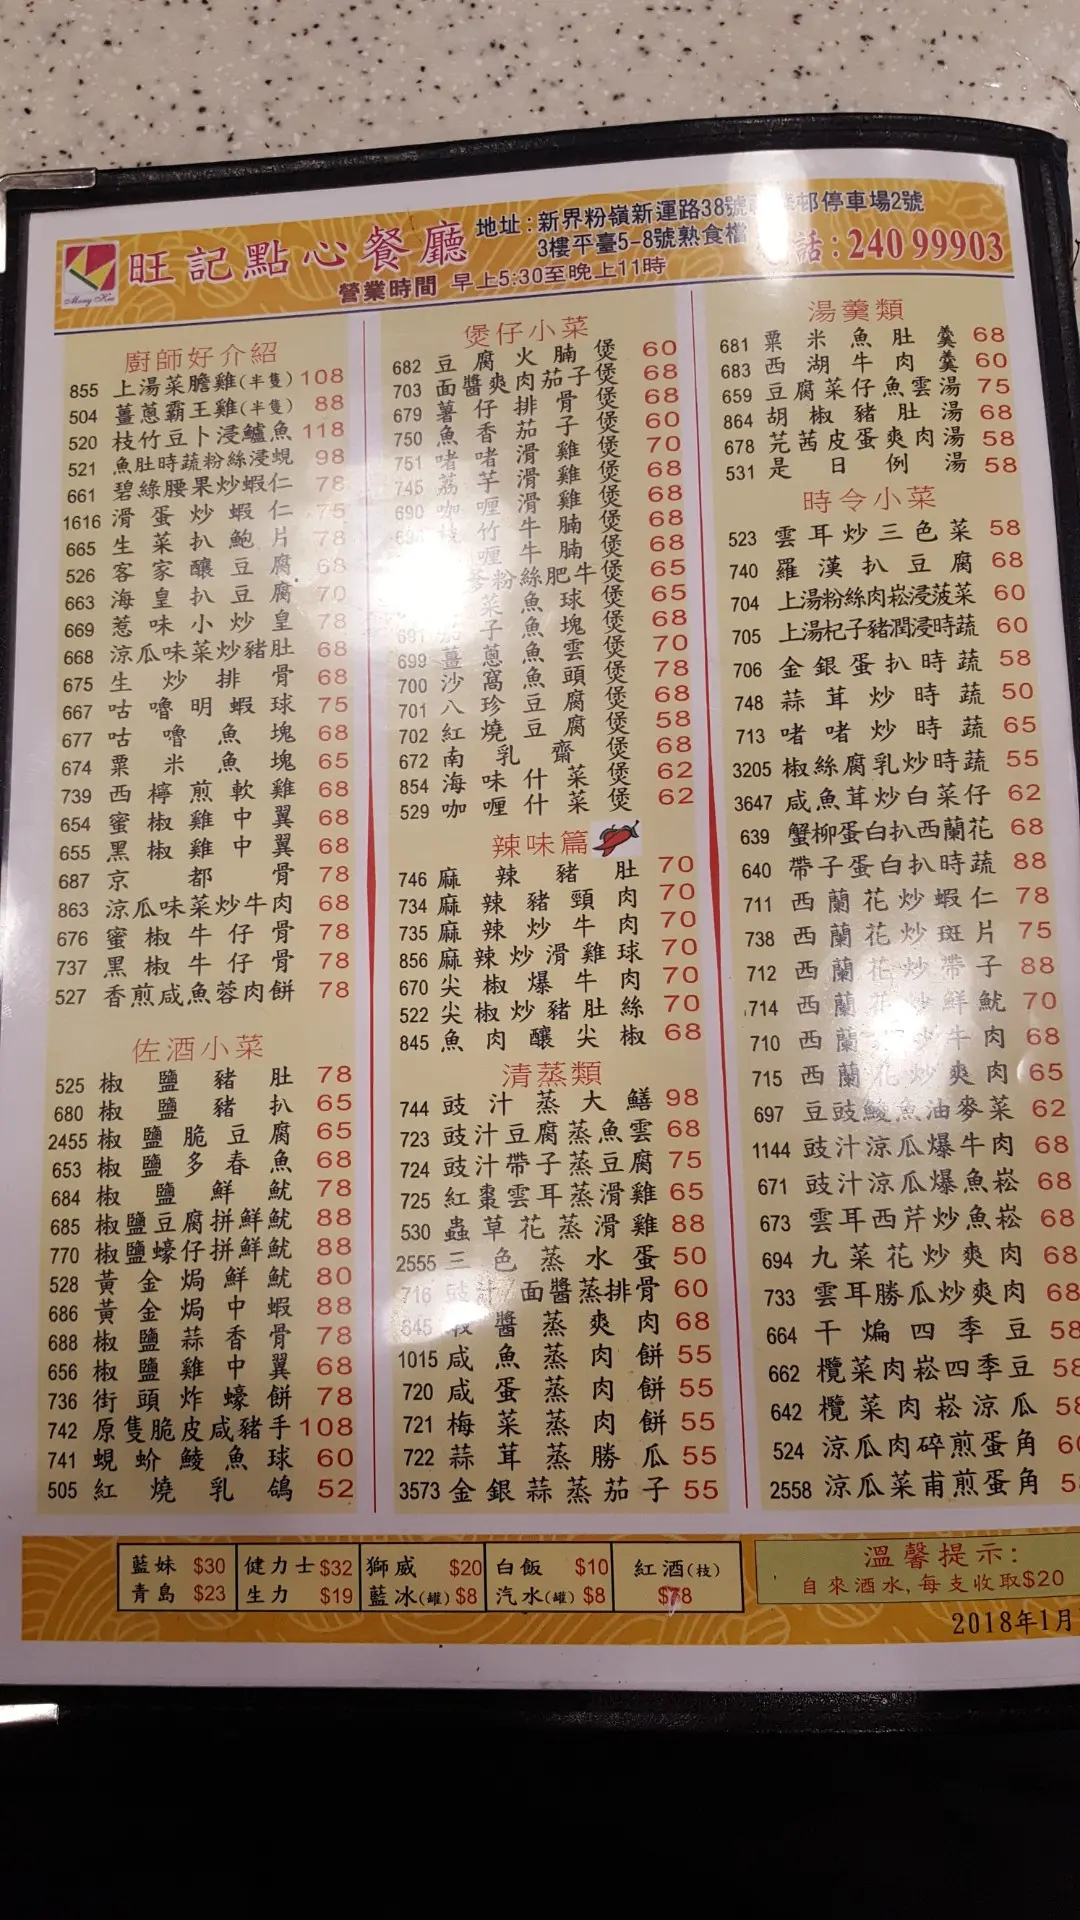 旺記點心餐廳
地址:新界粉嶺新運路38號 邨停車場2號
3樓平臺5-8號熟食檔
話:240 99903
營業時間 早上5:30至晚上11時
廚師好介紹
855 上湯菜膽雞(半隻) 108
504 薑蔥霸王雞(半隻) 88
520 枝竹豆卜浸鱸魚 118
521 魚肚時蔬粉絲浸蜆 98
661 碧綠腰果炒蝦仁 78
1616 滑蛋炒蝦仁 75
665 生菜扒鮑片 78
526 客家釀豆腐 68
663 海皇扒豆腐 70
669 惹味小炒皇 78
668 涼瓜味菜炒豬肚 68
675 生炒排骨 68
667 咕嚕明蝦球 75
677 咕嚕魚塊 68
674 粟米魚塊 65
739 西檸煎軟雞 68
654 蜜椒雞中翼 68
655 黑椒雞中翼 68
687 京都骨 78
863 涼瓜味菜炒牛肉 68
676 蜜椒牛仔骨 78
737 黑椒牛仔骨 78
527 香煎咸魚蓉肉餅 78
佐酒小菜
525 椒鹽豬肚 78
680 椒鹽豬扒 65
2455 椒鹽脆豆腐 65
653 椒鹽多春魚 68
684 椒鹽鮮魷 78
685 椒鹽豆腐拼鮮魷 88
770 椒鹽蠔仔拼鮮魷 88
528 黃金焗鮮魷 80
686 黃金焗中蝦 88
688 椒鹽蒜香骨 78
656 椒鹽雞中翼 68
736 街頭炸蠔餅 78
742 原隻脆皮咸豬手 108
741 蜆蚧鯪魚球 60
505 紅燒乳鴿 52
煲仔小菜
682 豆腐火腩煲 60
703 面醬爽肉茄子煲 68
679 薯仔排骨煲 68
750 魚香茄子煲 60
751 啫啫滑雞煲 70
745 荔芋滑雞煲 68
690 咖喱滑雞煲 68
枝竹牛腩煲 68
喱牛腩煲 68
粉絲肥牛煲 65
菜魚球煲 65
691 茄子魚塊煲 68
699 薑蔥魚雲煲 70
700 沙窩魚頭煲 78
701 八珍豆腐煲 68
702 紅燒豆腐煲 58
672 南乳齋煲 68
854 海味什菜煲 62
529 咖喱什菜煲 62
辣味篇
746 麻辣豬肚 70
734 麻辣豬頸肉 70
735 麻辣炒牛肉 70
856 麻辣炒滑雞球 70
670 尖椒爆牛肉 70
522 尖椒炒豬肚絲 70
845 魚肉釀尖椒 68
清蒸類
744 豉汁蒸大鱔 98
723 豉汁豆腐蒸魚雲 68
724 豉汁帶子蒸豆腐 75
725 紅棗雲耳蒸滑雞 65
530 蟲草花蒸滑雞 88
2555 三色蒸水蛋 50
716 豉汁/面醬蒸排骨 60
645 蝦醬蒸爽肉 68
1015 咸魚蒸肉餅 55
720 咸蛋蒸肉餅 55
721 梅菜蒸肉餅 55
722 蒜茸蒸勝瓜 55
3573 金銀蒜蒸茄子 55
湯羹類
681 粟米魚肚羹 68
683 西湖牛肉羹 60
659 豆腐菜仔魚雲湯 75
864 胡椒豬肚湯 68
678 芫茜皮蛋爽肉湯 58
531 是日例湯 58
時令小菜
523 雲耳炒三色菜 58
740 羅漢扒豆腐 68
704 上湯粉絲肉崧浸菠菜 60
705 上湯杞子豬潤浸時蔬 60
706 金銀蛋扒時蔬 58
748 蒜茸炒時蔬 50
713 啫啫炒時蔬 65
3205 椒絲腐乳炒時蔬 55
3647 咸魚茸炒白菜仔 62
639 蟹柳蛋白扒西蘭花 68
640 帶子蛋白扒時蔬 88
711 西蘭花炒蝦仁 78
738 西蘭花炒斑片 75
712 西蘭花炒帶子 88
714 西蘭花炒鮮魷 70
710 西蘭花炒牛肉 68
715 西蘭花炒爽肉 65
697 豆豉鯪魚油麥菜 62
1144 豉汁涼瓜爆牛肉 68
671 豉汁涼瓜爆魚崧 68
673 雲耳西芹炒魚崧 68
694 九菜花炒爽肉 68
733 雲耳勝瓜炒爽肉 68
664 干煸四季豆 58
662 欖菜肉崧四季豆 58
642 欖菜肉崧涼瓜 58
524 涼瓜肉碎煎蛋角 60
2558 涼瓜菜甫煎蛋角 5
藍妹 $30 健力士 $32 獅威 $20 白飯 $10 紅酒(枝)
青島 $23 生力 $19 藍冰(罐) $8 汽水(罐) $8 $78
溫馨提示:
自來酒水,每支收取$20
2018年1月